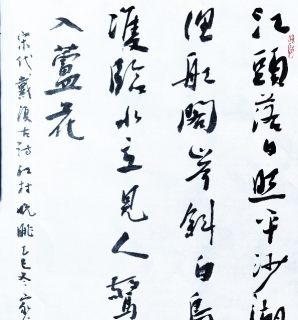 江頭落日照平沙潮
漁舡閣岸斜白鳥
雙臨水立見人驚
入蘆花
宋代戴復古詩江村晚眺乙巳冬家